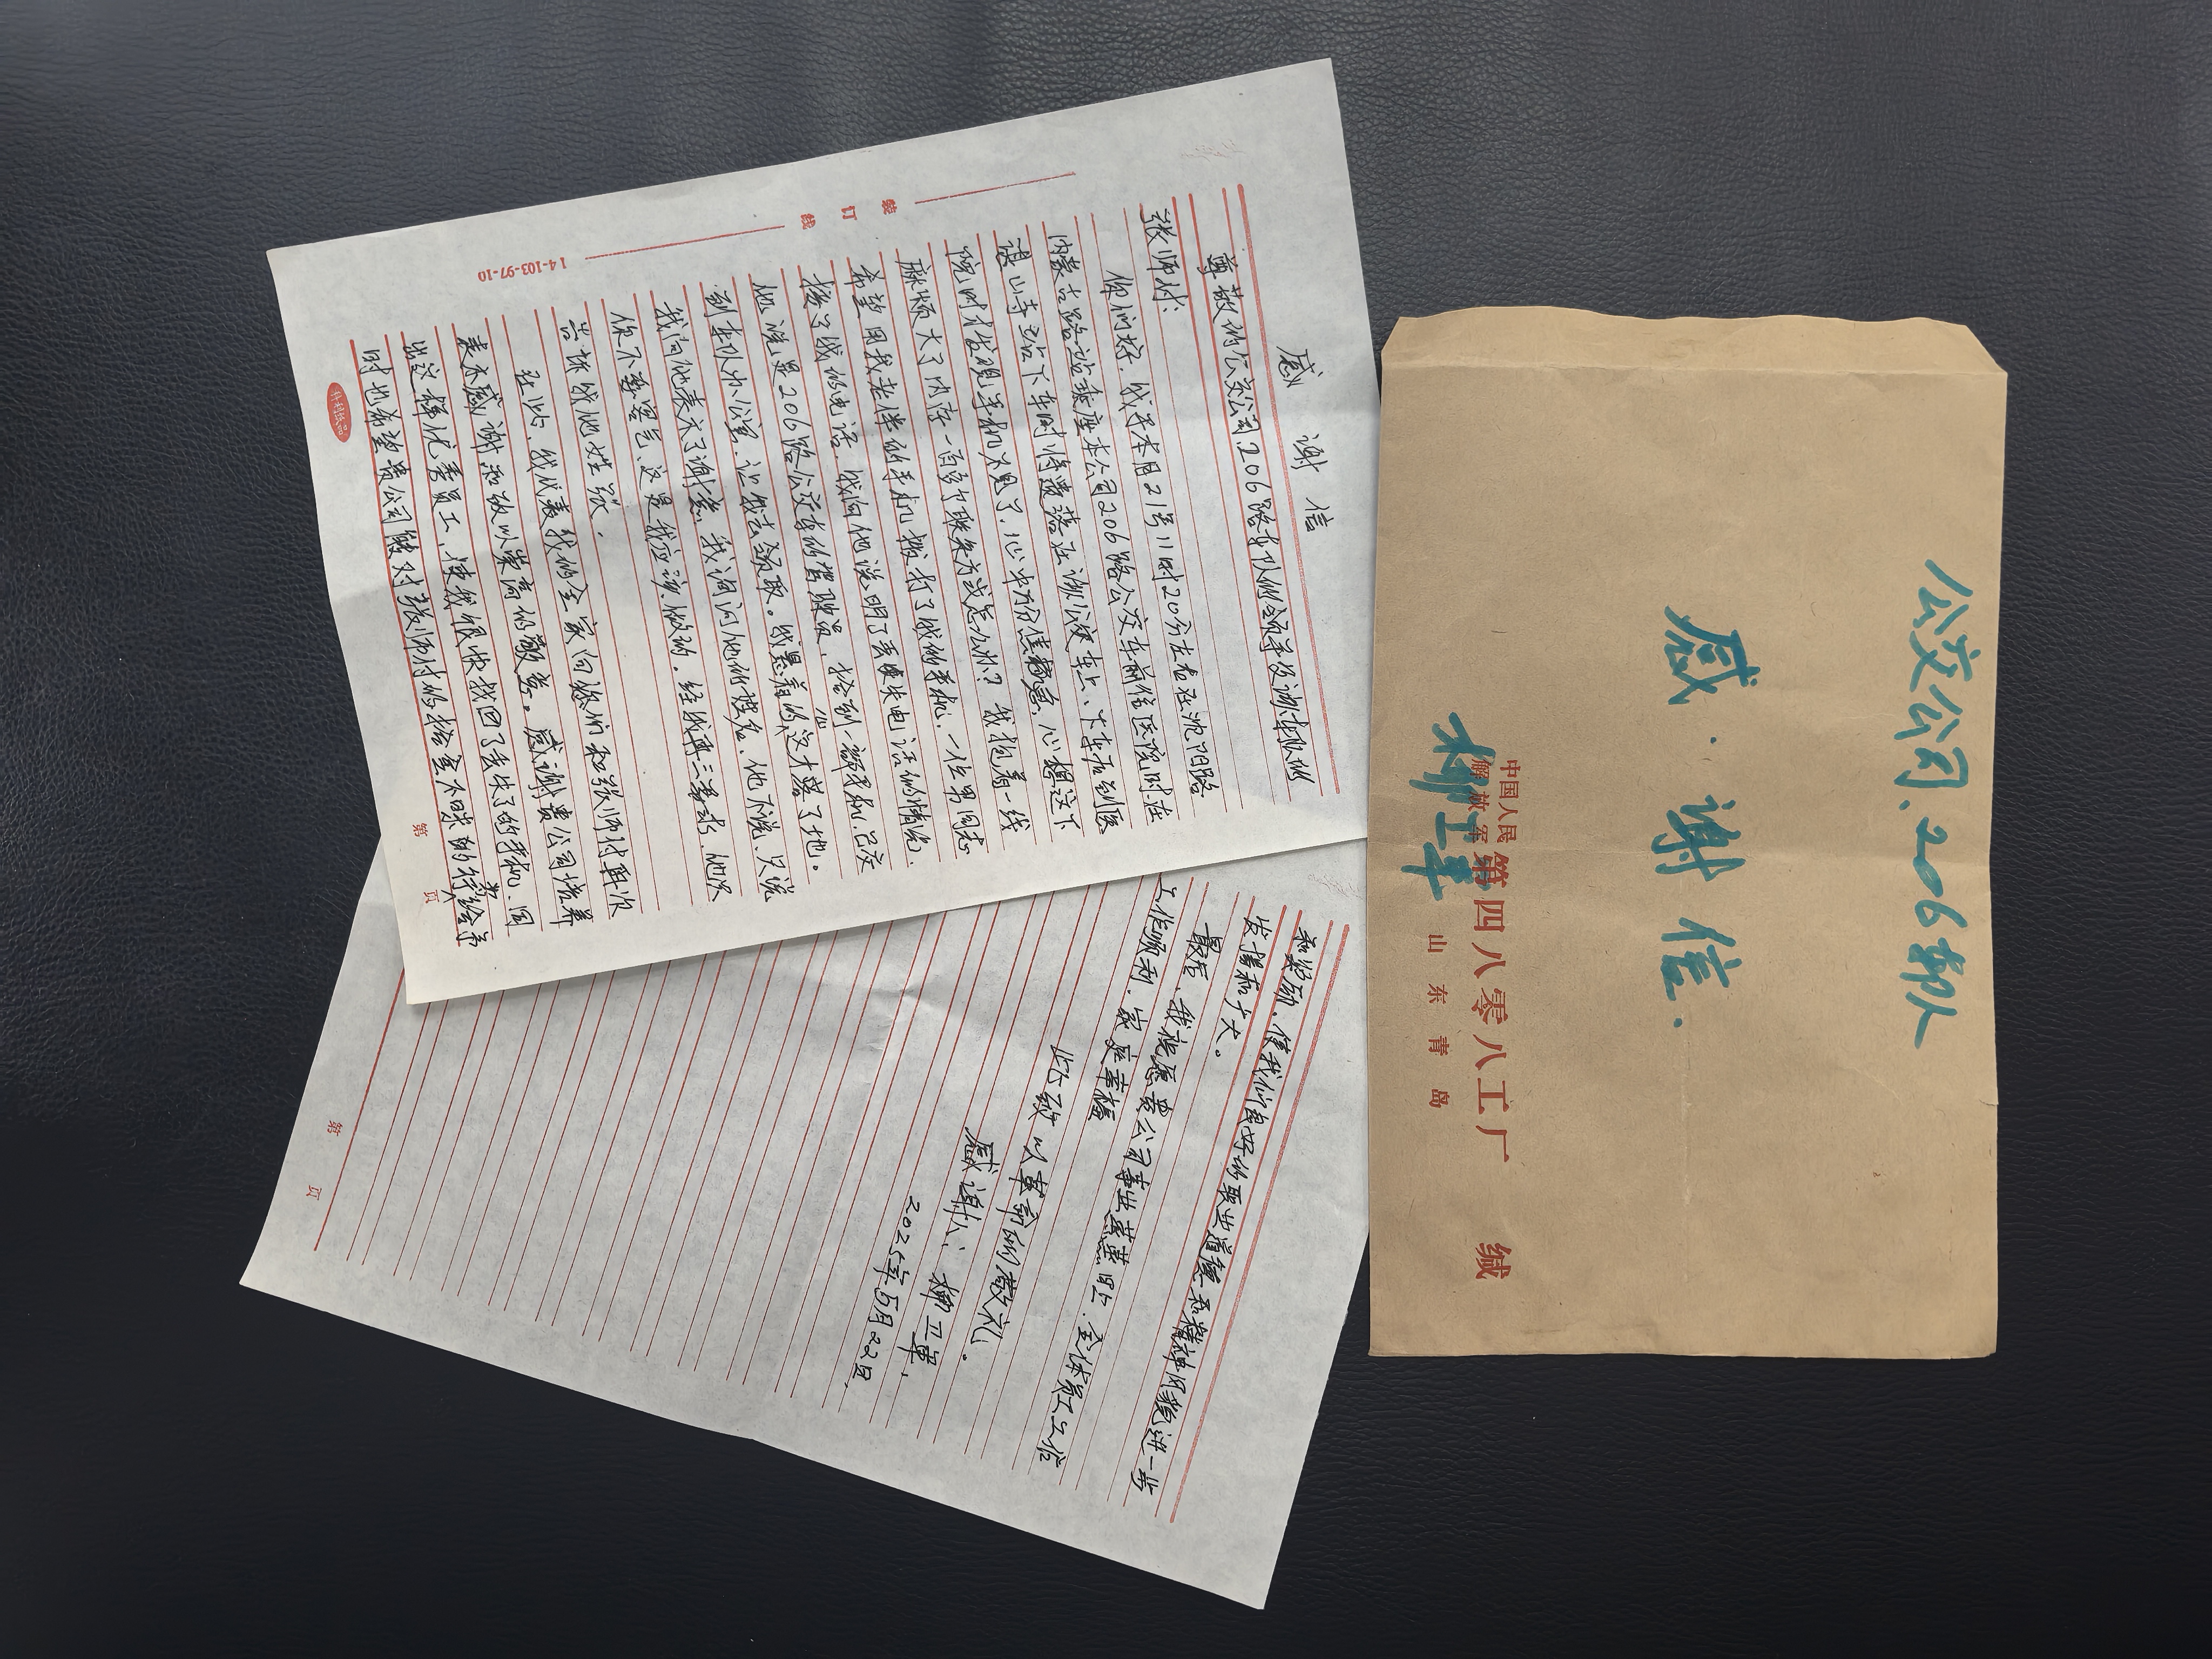 感 谢 信
尊敬的公交公司206路车队的领导及该车队的
张师付:
你们好,我于本月21号11时20分左右在沈阳路
内蒙古路站乘座本公司206路公交车前往医院时在
湛山寺站下车时将遗落在该公交车上、下车后到医
院时才发现手机不见了,心中万分焦急,心想这下
麻烦大了内存一百多个联系方式怎么办?我抱着一线
希望用我老伴的手机拨打了我的手机,一位男同志
接了我的电话,我向他说明了丢失电话的情况,
他说是206路公交车的驾驶员,拾到一部手机,已交
到车队办公室,让我去领取。我悬着的心这才落了地。
我向他表示了谢意,我询问他的姓名,他不说,只说
你不要客气,这是我应该做的。经我再三要求,他只
告诉我他姓张.
在此,我代表我的全家向您们和张师付再次
表示感谢和致以崇高的敬意。感谢贵公司培养
出这样优秀员工,使我很快找回了丢失了的手机,同
时也希望贵公司能对张师付的拾金不昧的行为给予
装订线
14-103-97-10
第 页
和奖励,使我们良好的职业道德和精神风貌进一步
发扬和广大。
最后,我祝愿贵公司事业蒸蒸日上,全体员工工作
工作顺利,家庭幸福
此致 以革命的敬礼.
感谢人:柳卫军,
2025年5月22日,
第 页
公交公司、206部队
感·谢信.
柳卫军
中国人民
解放军第四八零八工厂 缄
山东青岛